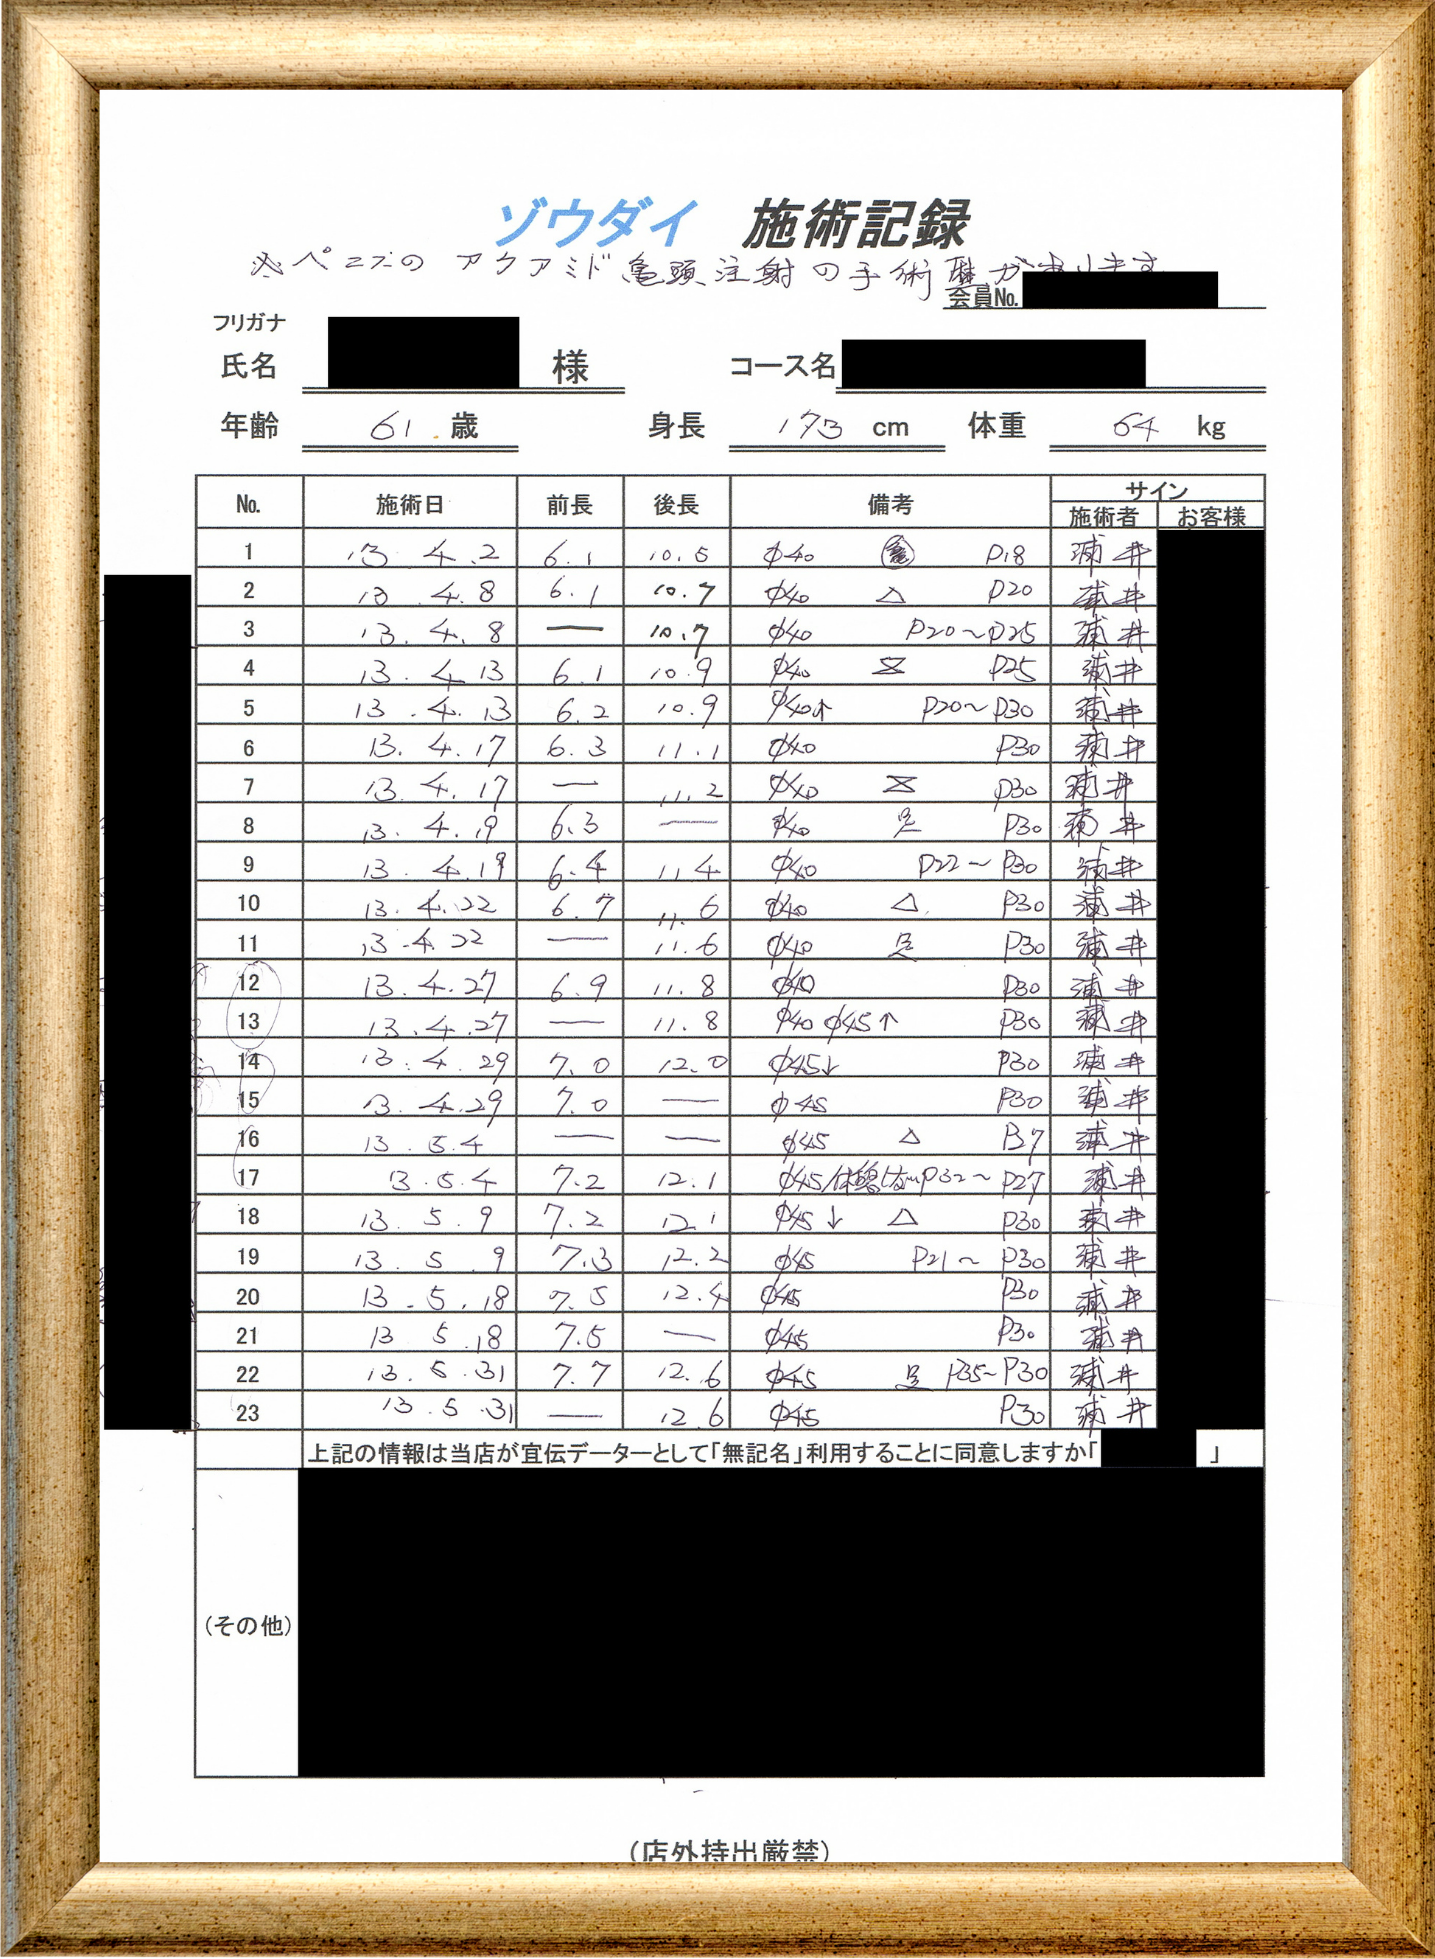 ゾウダイ 施術記録
※ペニスの アクアミド 亀頭注射の手術歴があります
会員No.
フリガナ
氏名 様 コース名
年齢 61 歳 身長 173 cm 体重 64 kg
No. 施術日 前長 後長 備考 サイン
施術者 お客様
1 13 4.2 6.1 10.5 φ40 亀 P18
2 13 4.8 6.1 10.7 φ40 △ P20
3 13. 4. 8 — 10.7 φ40 P20～P25
4 13. 4.13 6.1 10.9 φ40 P25
5 13 .4. 13 6.2 10.9 φ40↑ P20～P30
6 13. 4.17 6.3 11.1 φ40 P30
7 13. 4. 17 — 11.2 φ40 P30
8 13. 4.19 6.3 — φ40 足 P30
9 13. 4.19 6.4 11.4 φ40 P22～P30
10 13. 4.22 6.7 11.6 φ40 △ P30
11 13.4 22 — 11.6 φ40 足 P30
12 13.4.27 6.9 11.8 φ40 P30
13 13.4.27 — 11.8 φ40 φ45↑ P30
14 13. 4. 29 7.0 12.0 φ45↓ P30
15 13. 4.29 7.0 — φ45 P30
16 13. 5.4 — — φ45 △
17 13.5.4 7.2 12.1 φ45 P32～P27
18 13. 5. 9 7.2 12.1 φ45↓ △ P30
19 13. 5 .9 7.3 12.2 φ45 P21～P30
20 13. 5. 18 7.5 12.4 φ45 P30
21 13 5.18 7.5 — φ45 P30
22 13.5.31 7.7 12.6 φ45 足 P35～P30
23 13.5.31 — 12.6 φ45 P30
上記の情報は当店が宣伝データーとして「無記名」利用することに同意しますか「 」
(その他)
(店外持出厳禁)